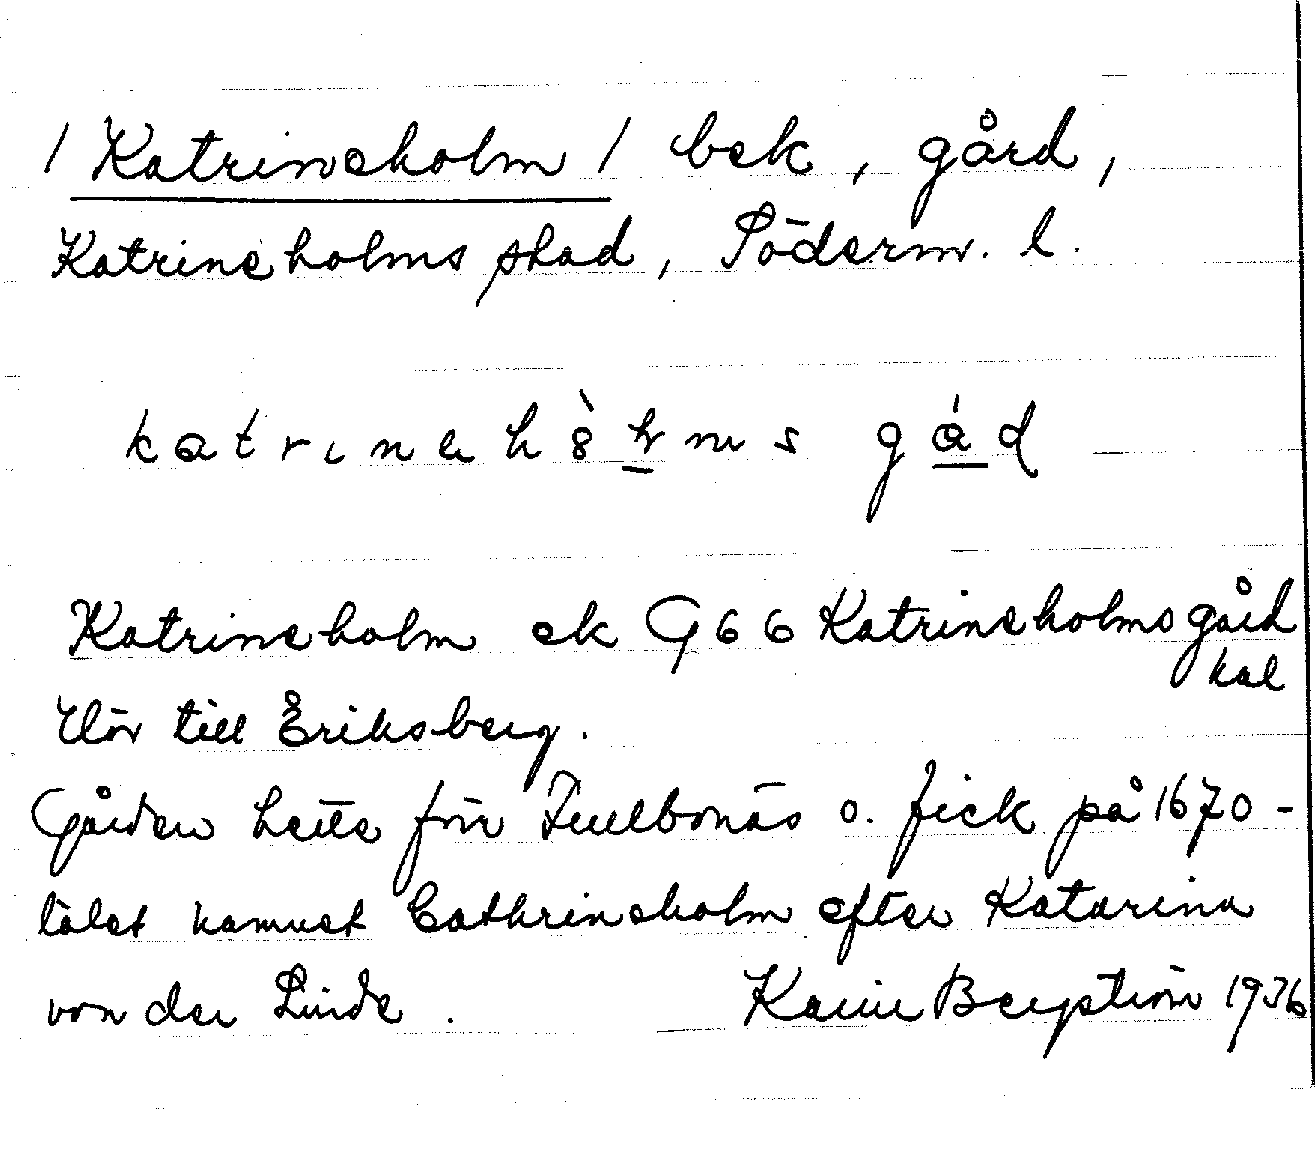 / Katrineholm / bek, gård,
Katrineholms stad, Söderm. l.
katrinehòlms gád
Katrineholm ek G 66 Katrineholms gård
kal
till Eriksberg.
Gården hette förr Fuelbonäs o. fick på 1670-
talet namnet Cathrineholm efter Katarina
von der Linde. Karin Bergström 1936